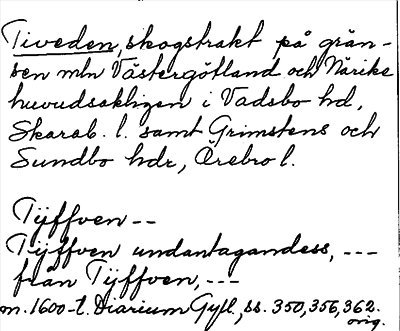 Tiveden, skogstrakt på grän-
sen mln Västergötland och Närike
huvudsakligen i Vadsbo hd,
Skarab. l. samt Grimstens och
Sundbo hdr, Örebro l.
Tÿffven --
Tÿffven undantagandess, ---
från Tÿffven, ---
m. 1600-t. Diarium Gyll., ss. 350, 356, 362.
orig.